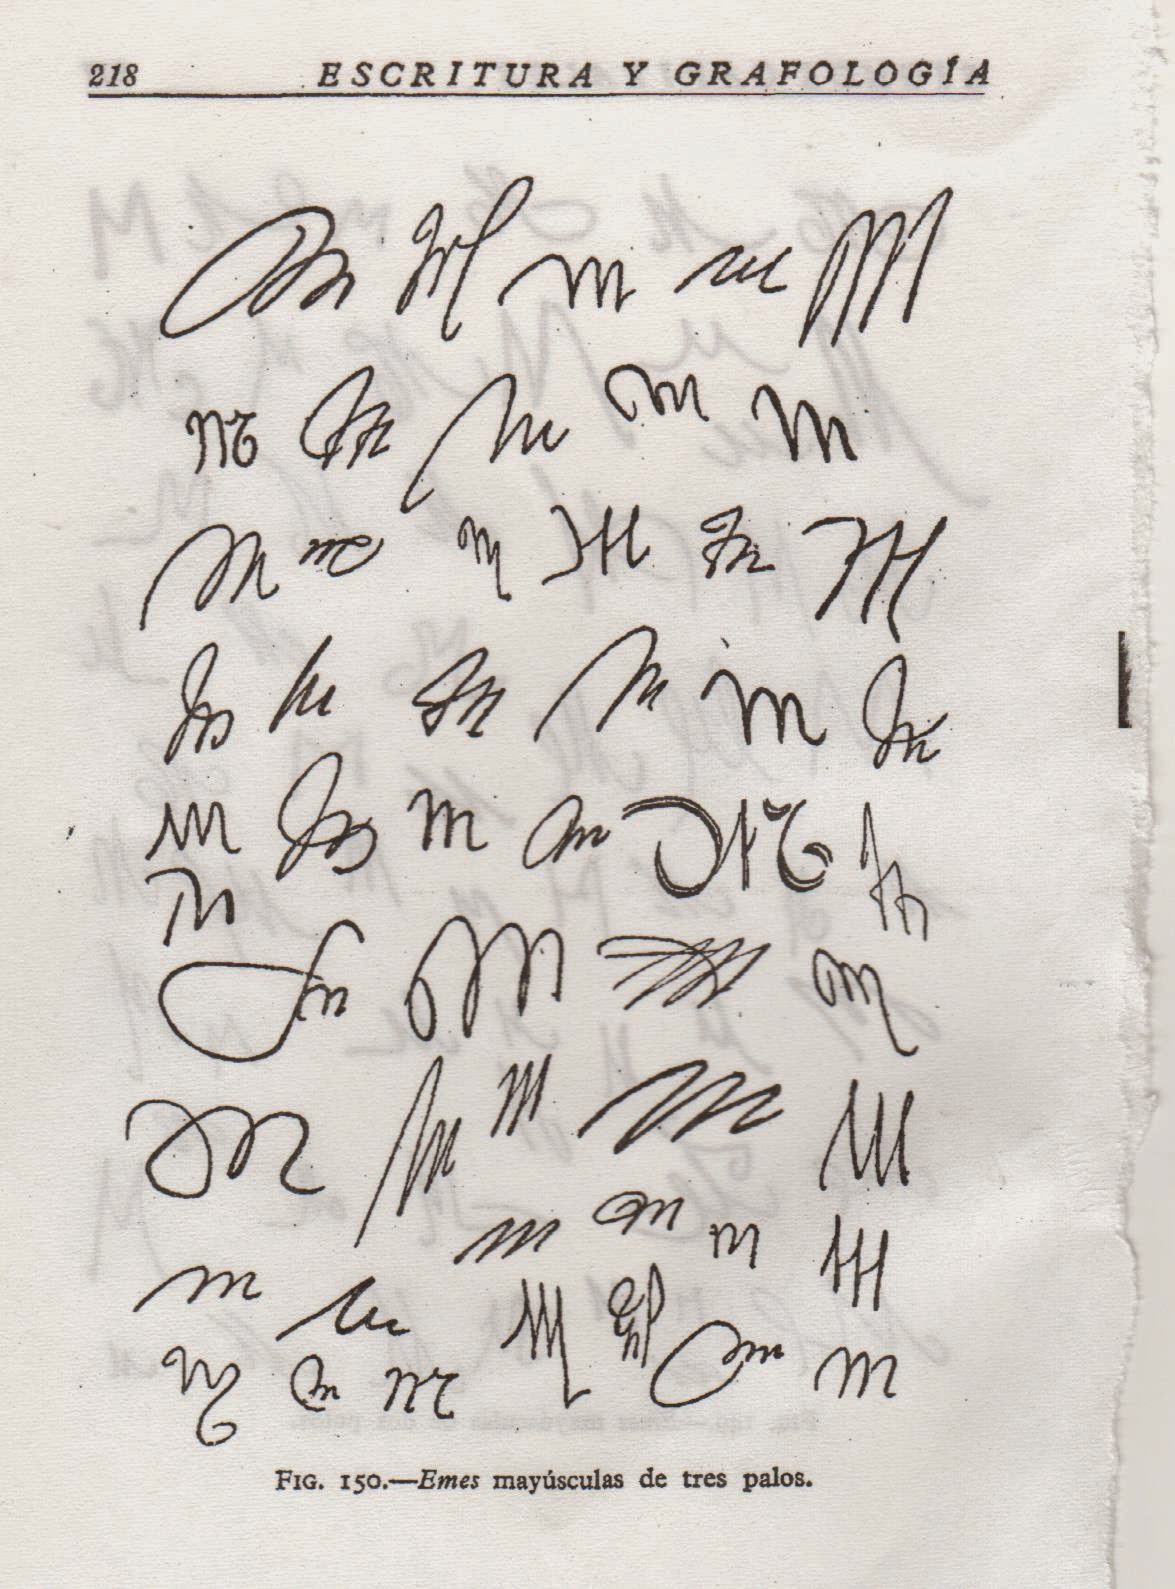 218 ESCRITURA Y GRAFOLOGÍA
M M M M M
M M M M M
M M M M M M
M M M M M M
M M M M M M
M
M M M M
M M M M M
M M M M
M M M M
M M M M M
FIG. 150.—Emes mayúsculas de tres palos.